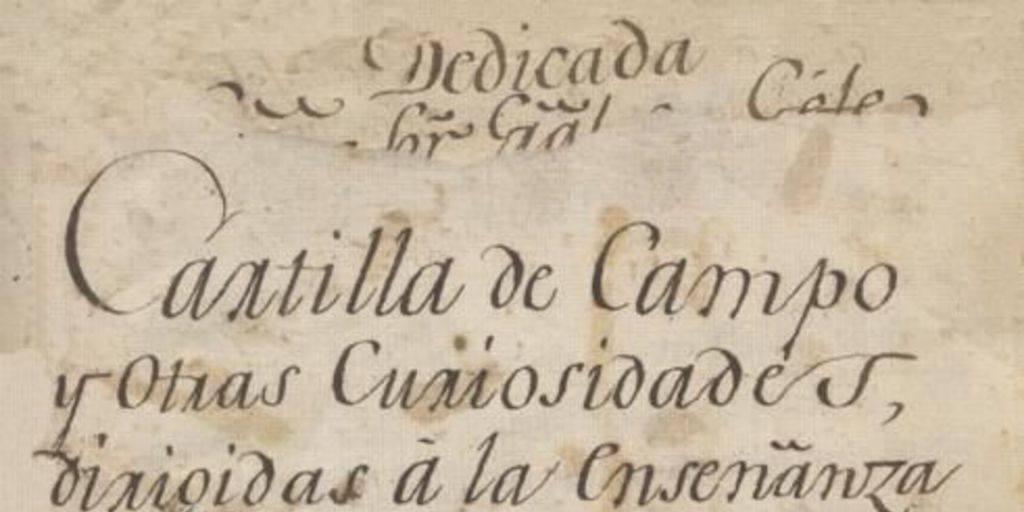 Dedicada
Cartilla de Campo
y Otras Curiosidades,
dirigidas â la Enseñanza